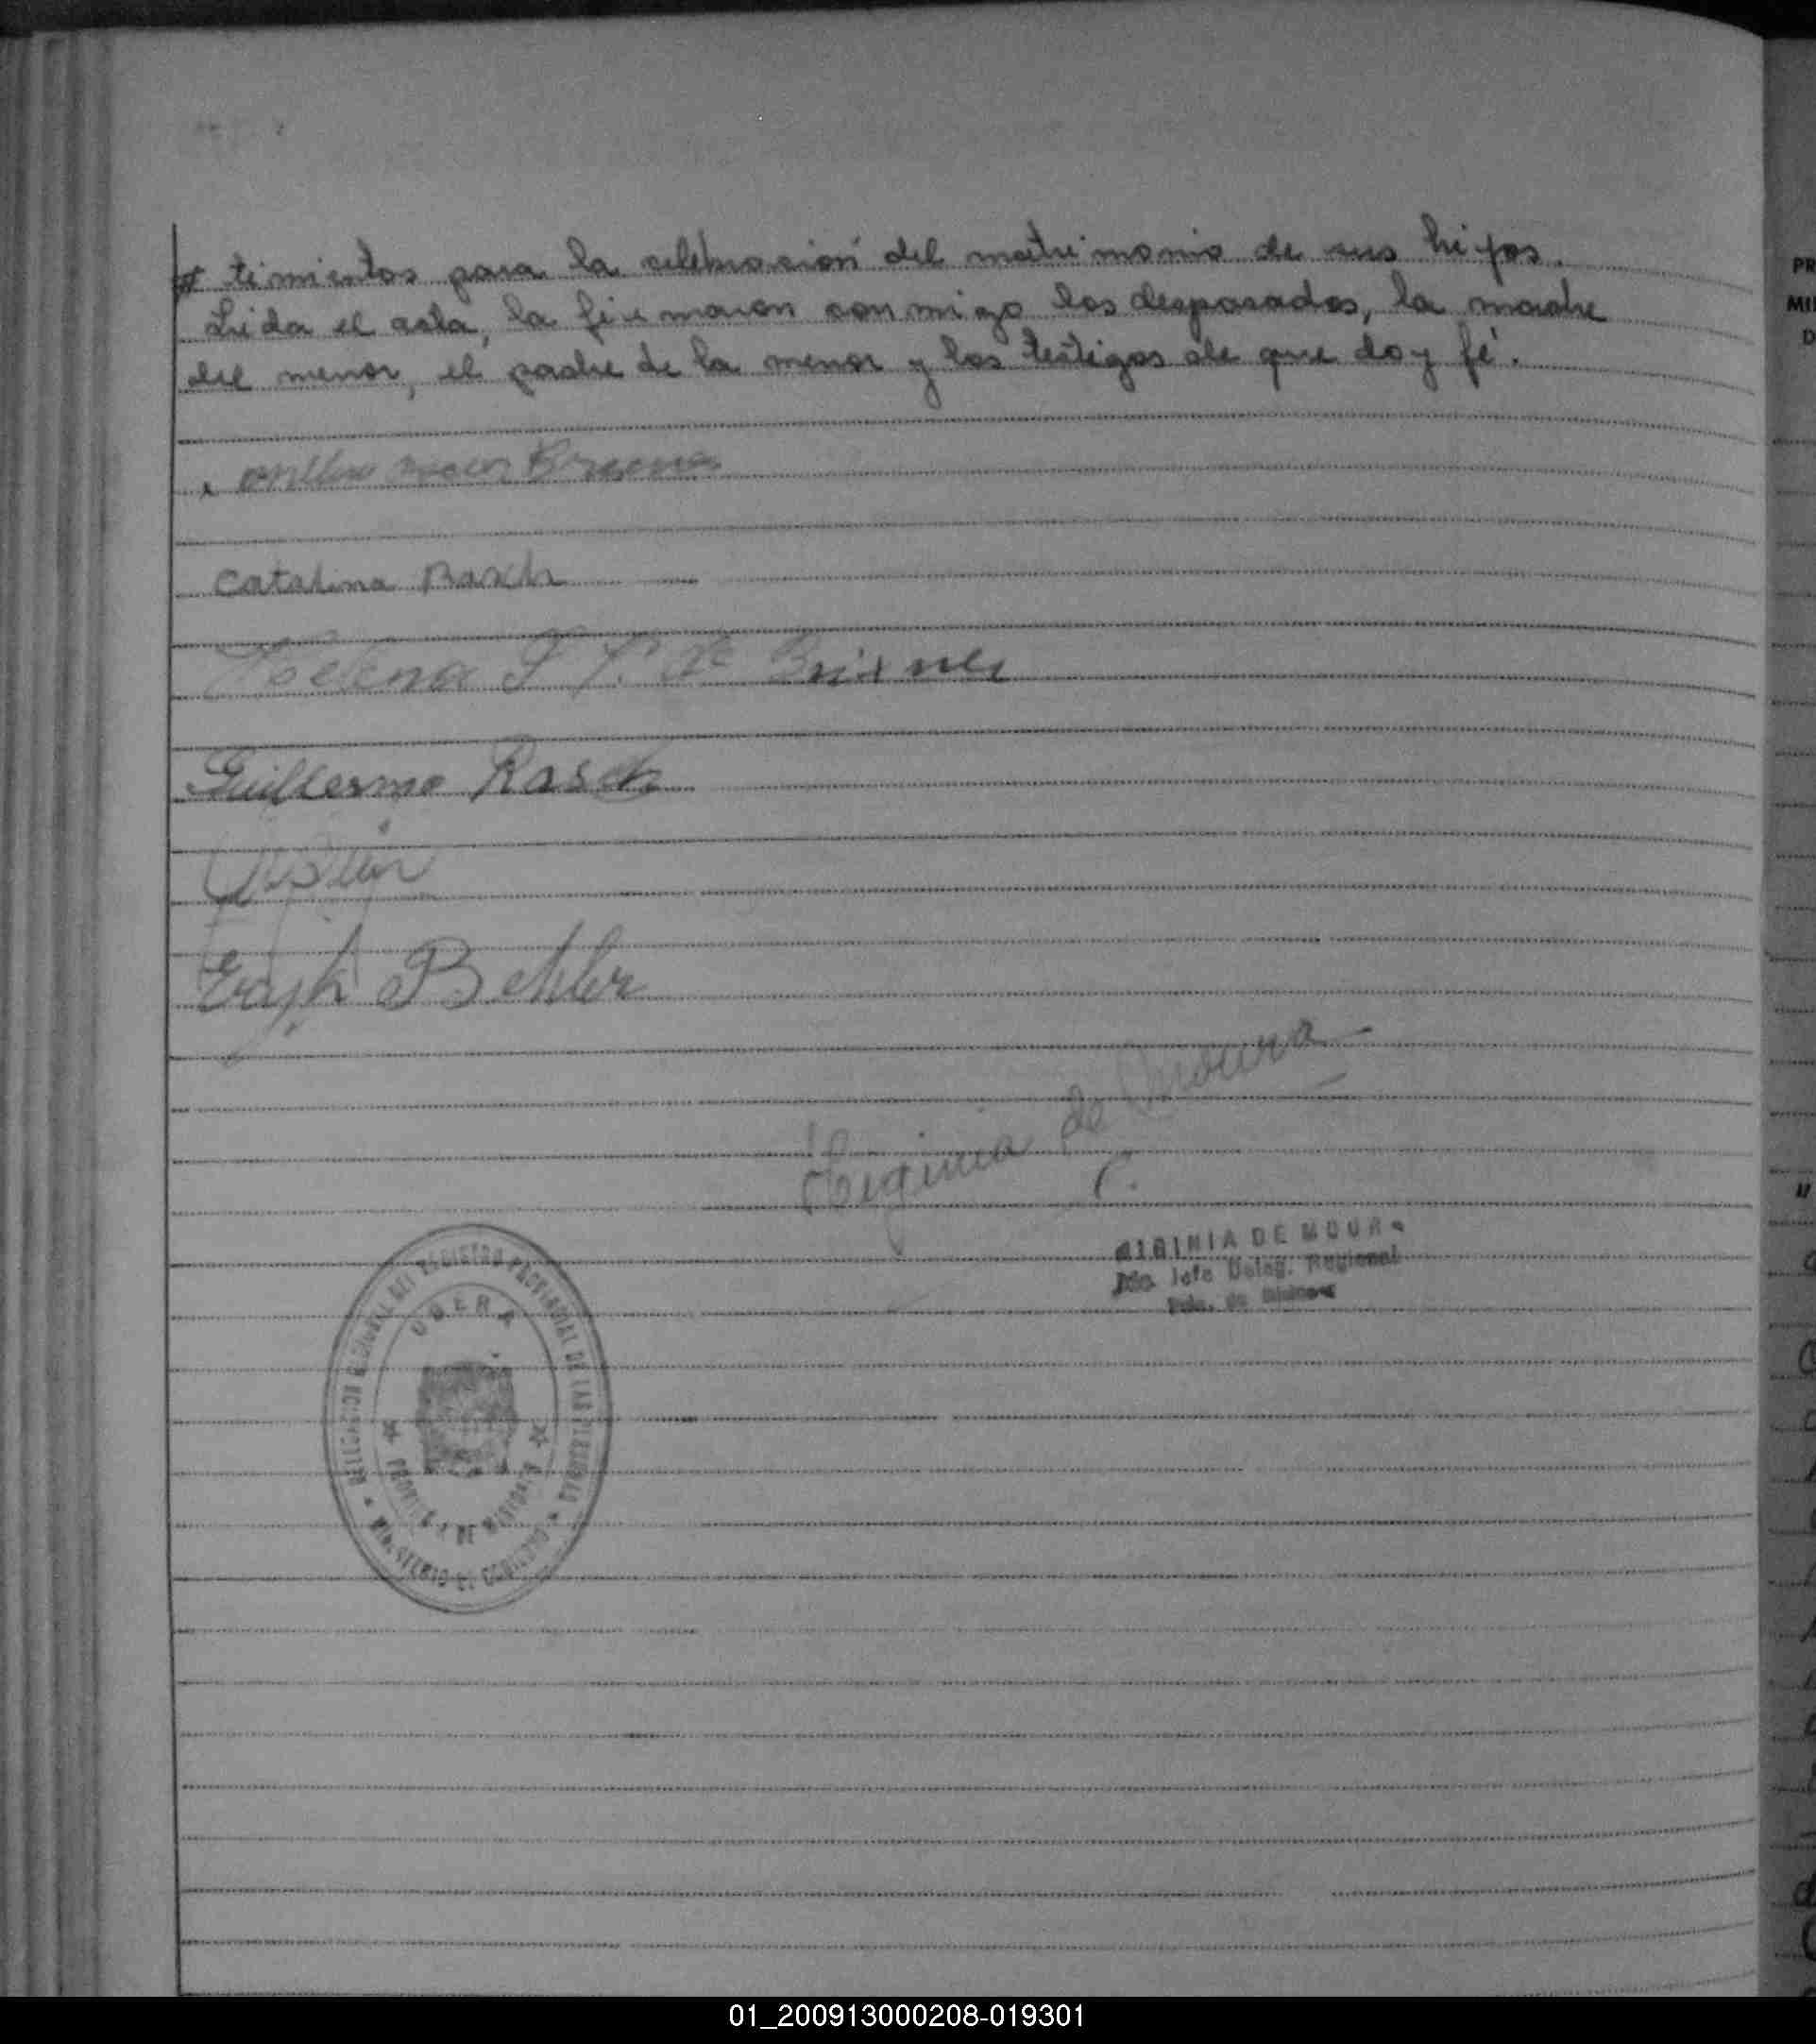 timientos para la celebración del matrimonio de sus hijos.
Leida el acta, la firmaron conmigo los desposados, la madre
del menor, el padre de la menor y los testigos de que doy fé.
Catalina Rasch
Helena de Brixner
Guillermo Rasch
Behler
Higinia de Moura
HIGINIA DE MOURA
Jefe Deleg. Regional
DELEGACION REGIONAL DEL REGISTRO PROVINCIAL DE LAS PERSONAS
OBERA
PROVINCIA DE MISIONES
MINISTERIO DE GOBIERNO
PR
MI
D
01_200913000208-019301